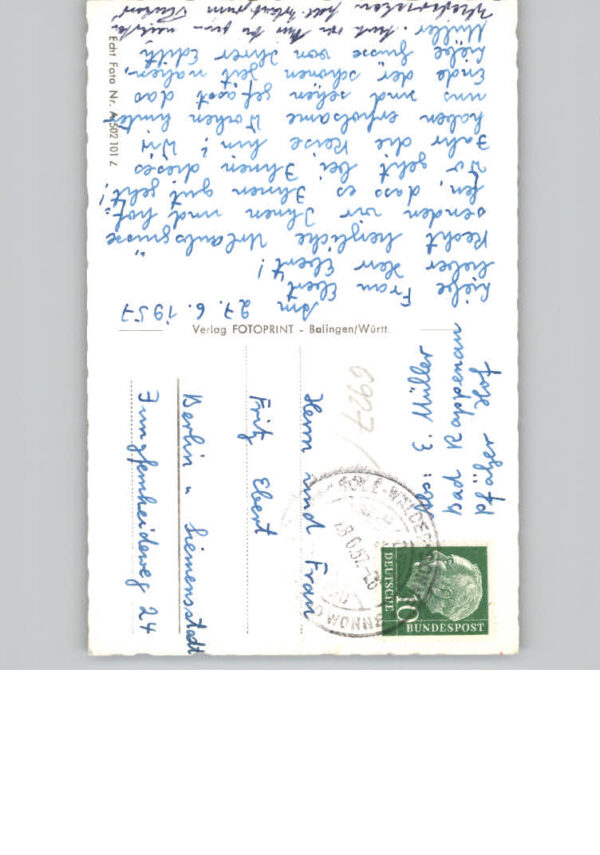 Am 27.6.1957
Liebe Frau Ebert
Lieber Herr Ebert!
Recht herzliche Urlaubsgrüsse
senden wir Ihnen und hof-
fen, dass es Ihnen gut geht!
Wo geht bei Ihnen dieses
Jahr die Reise hin? Wir
haben erholsame Wochen hinter
uns und sehen gefasst das
Ende der schönen Zeit nahen,
Liebe Grüsse von Ihrer Edith
Müller. Auch von
Wiedersehen
Echt Foto Nr. A 502 101 Z
Verlag FOTOPRINT - Balingen/Württ.
Müller
Bad Rappenau
Pfälzer Hof
6927
Herrn und Frau
Fritz Ebert
Berlin - Siemensstadt
Jungfernheideweg 24
DEUTSCHE
BUNDESPOST
10